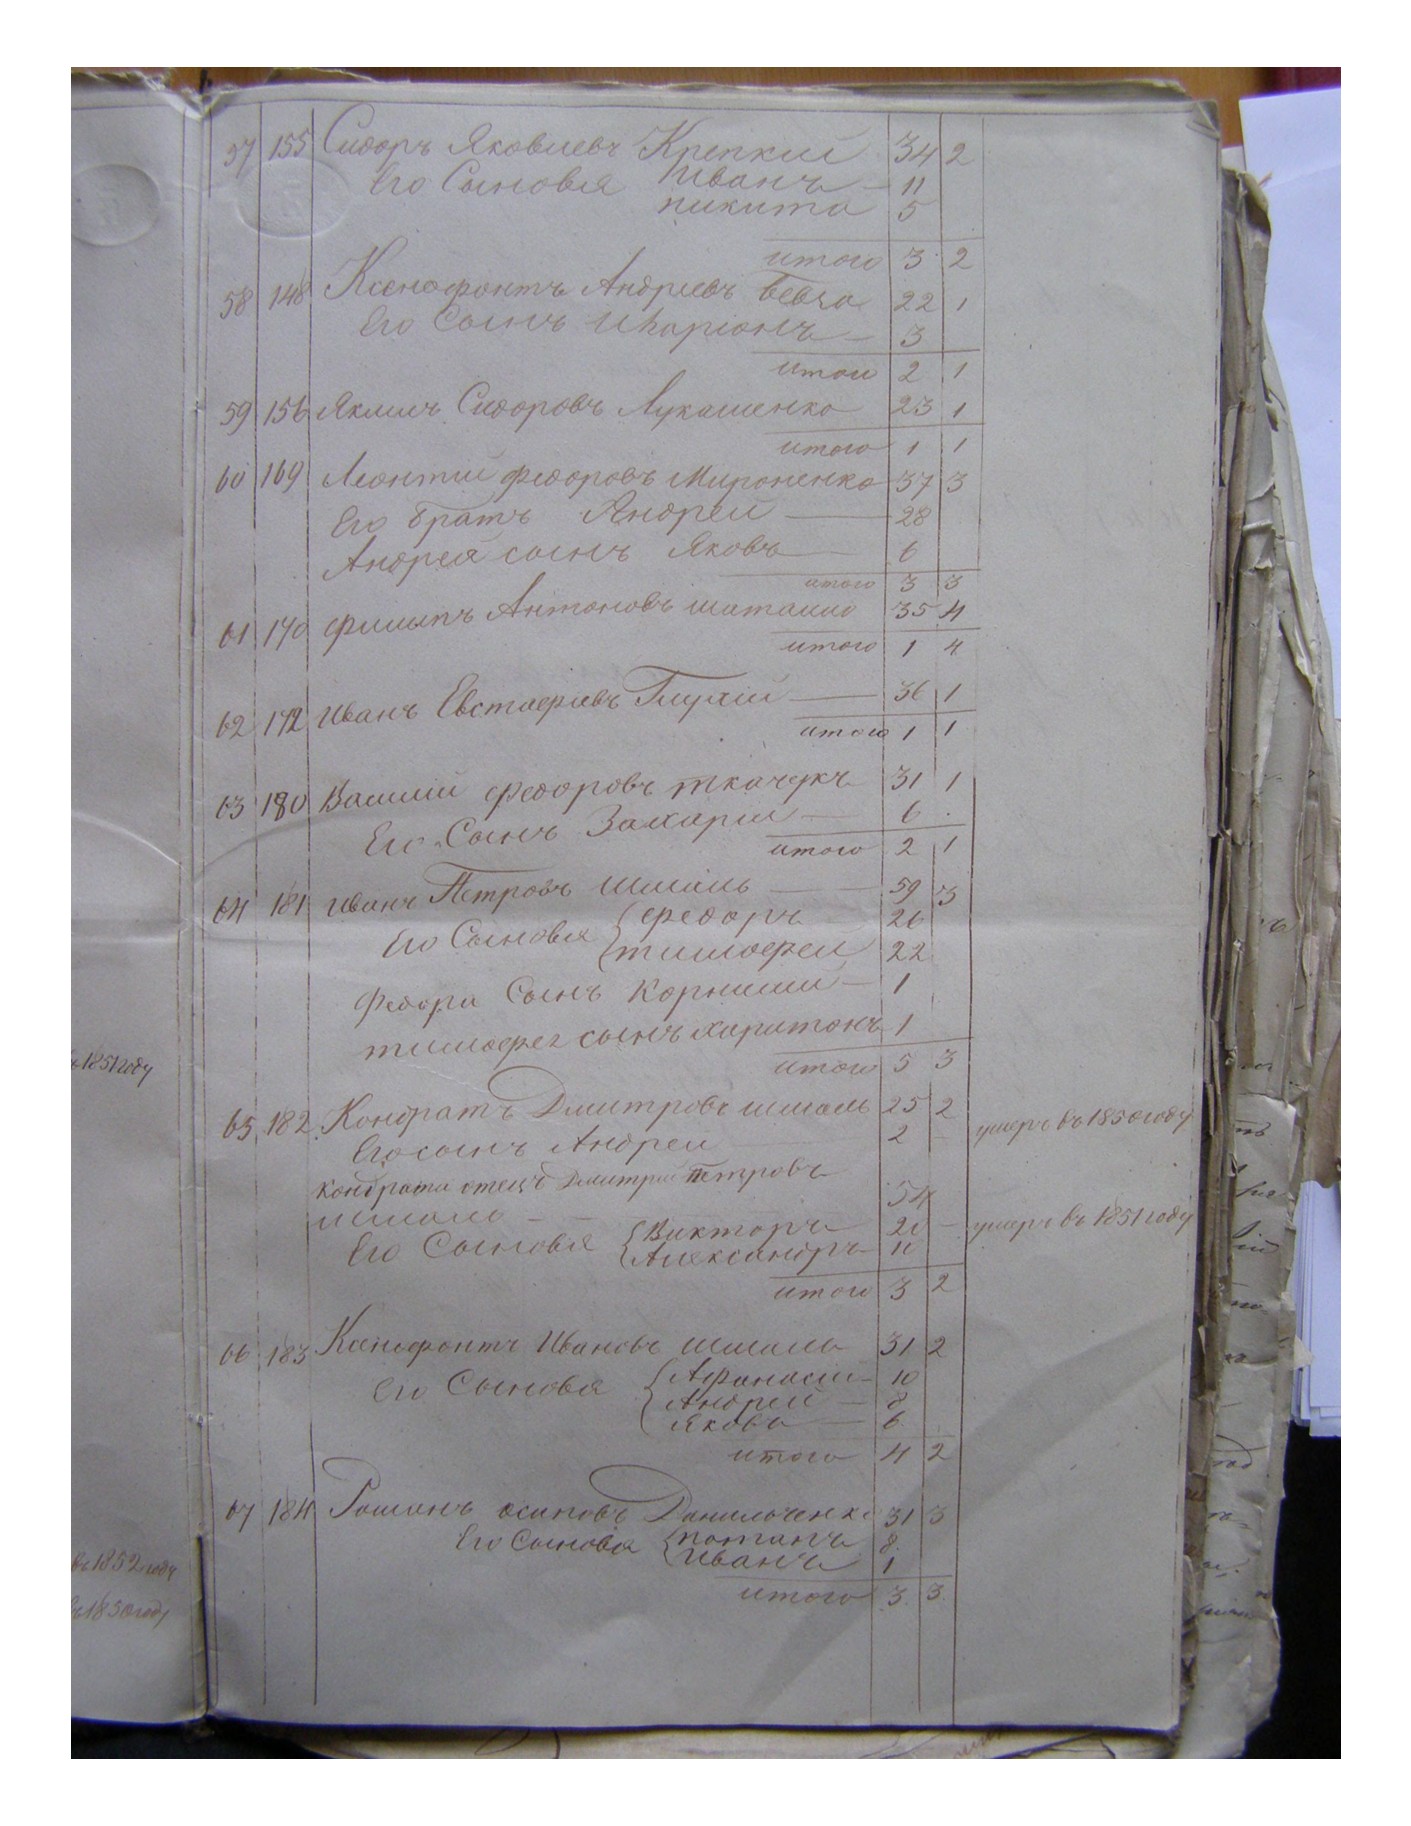 57 155 Сидоръ Яковлевъ Крепкій 34 2
Его Сыновья Иванъ 11
никита 5
итого 3 2
58 148 Ксенофонтъ Андреевъ 22 1
Его Сынъ Иларіонъ 3
итого 2 1
59 156 Якимъ Сидоровъ Лукашенко 23 1
итого 1 1
60 169 Леонтій федоровъ Мироненко 37 3
Его братъ Андрей 28
Андрея сынъ Яковъ 6
итого 3 3
61 170 филипъ Антоновъ 35 4
итого 1 4
62 172 Иванъ Евстафіевъ Глухій 36 1
итого 1 1
63 180 Василій федоровъ ткачукъ 31 1
Его Сынъ Захарій 6
итого 2 1
64 181 иванъ Петровъ шмаль 59 3
Его Сыновья федоръ 26
тимофей 22
федора Сынъ Корнилий 1
тимофея сынъ харитонъ 1
итого 5 3
65 182 Кондратъ Дмитровъ шмаль 25 2
Его сынъ Андрей 2 — умеръ въ 1850 году
въ 1851 году
Кондрата отецъ Дмитрій петровъ
шмаль 54
Его Сыновья Викторъ 20 — умеръ въ 1851 году
Александръ 10
итого 3 2
66 183 Ксенофонтъ Ивановъ шмаль 31 2
Его Сыновья Афанасій 10
Андрей 8
Яковъ 6
итого 4 2
67 184 Романъ осиповъ Данильченко 31 3
Его Сыновья потапъ 8
Иванъ 1
итого 3 3
въ 1852 году
въ 1850 году